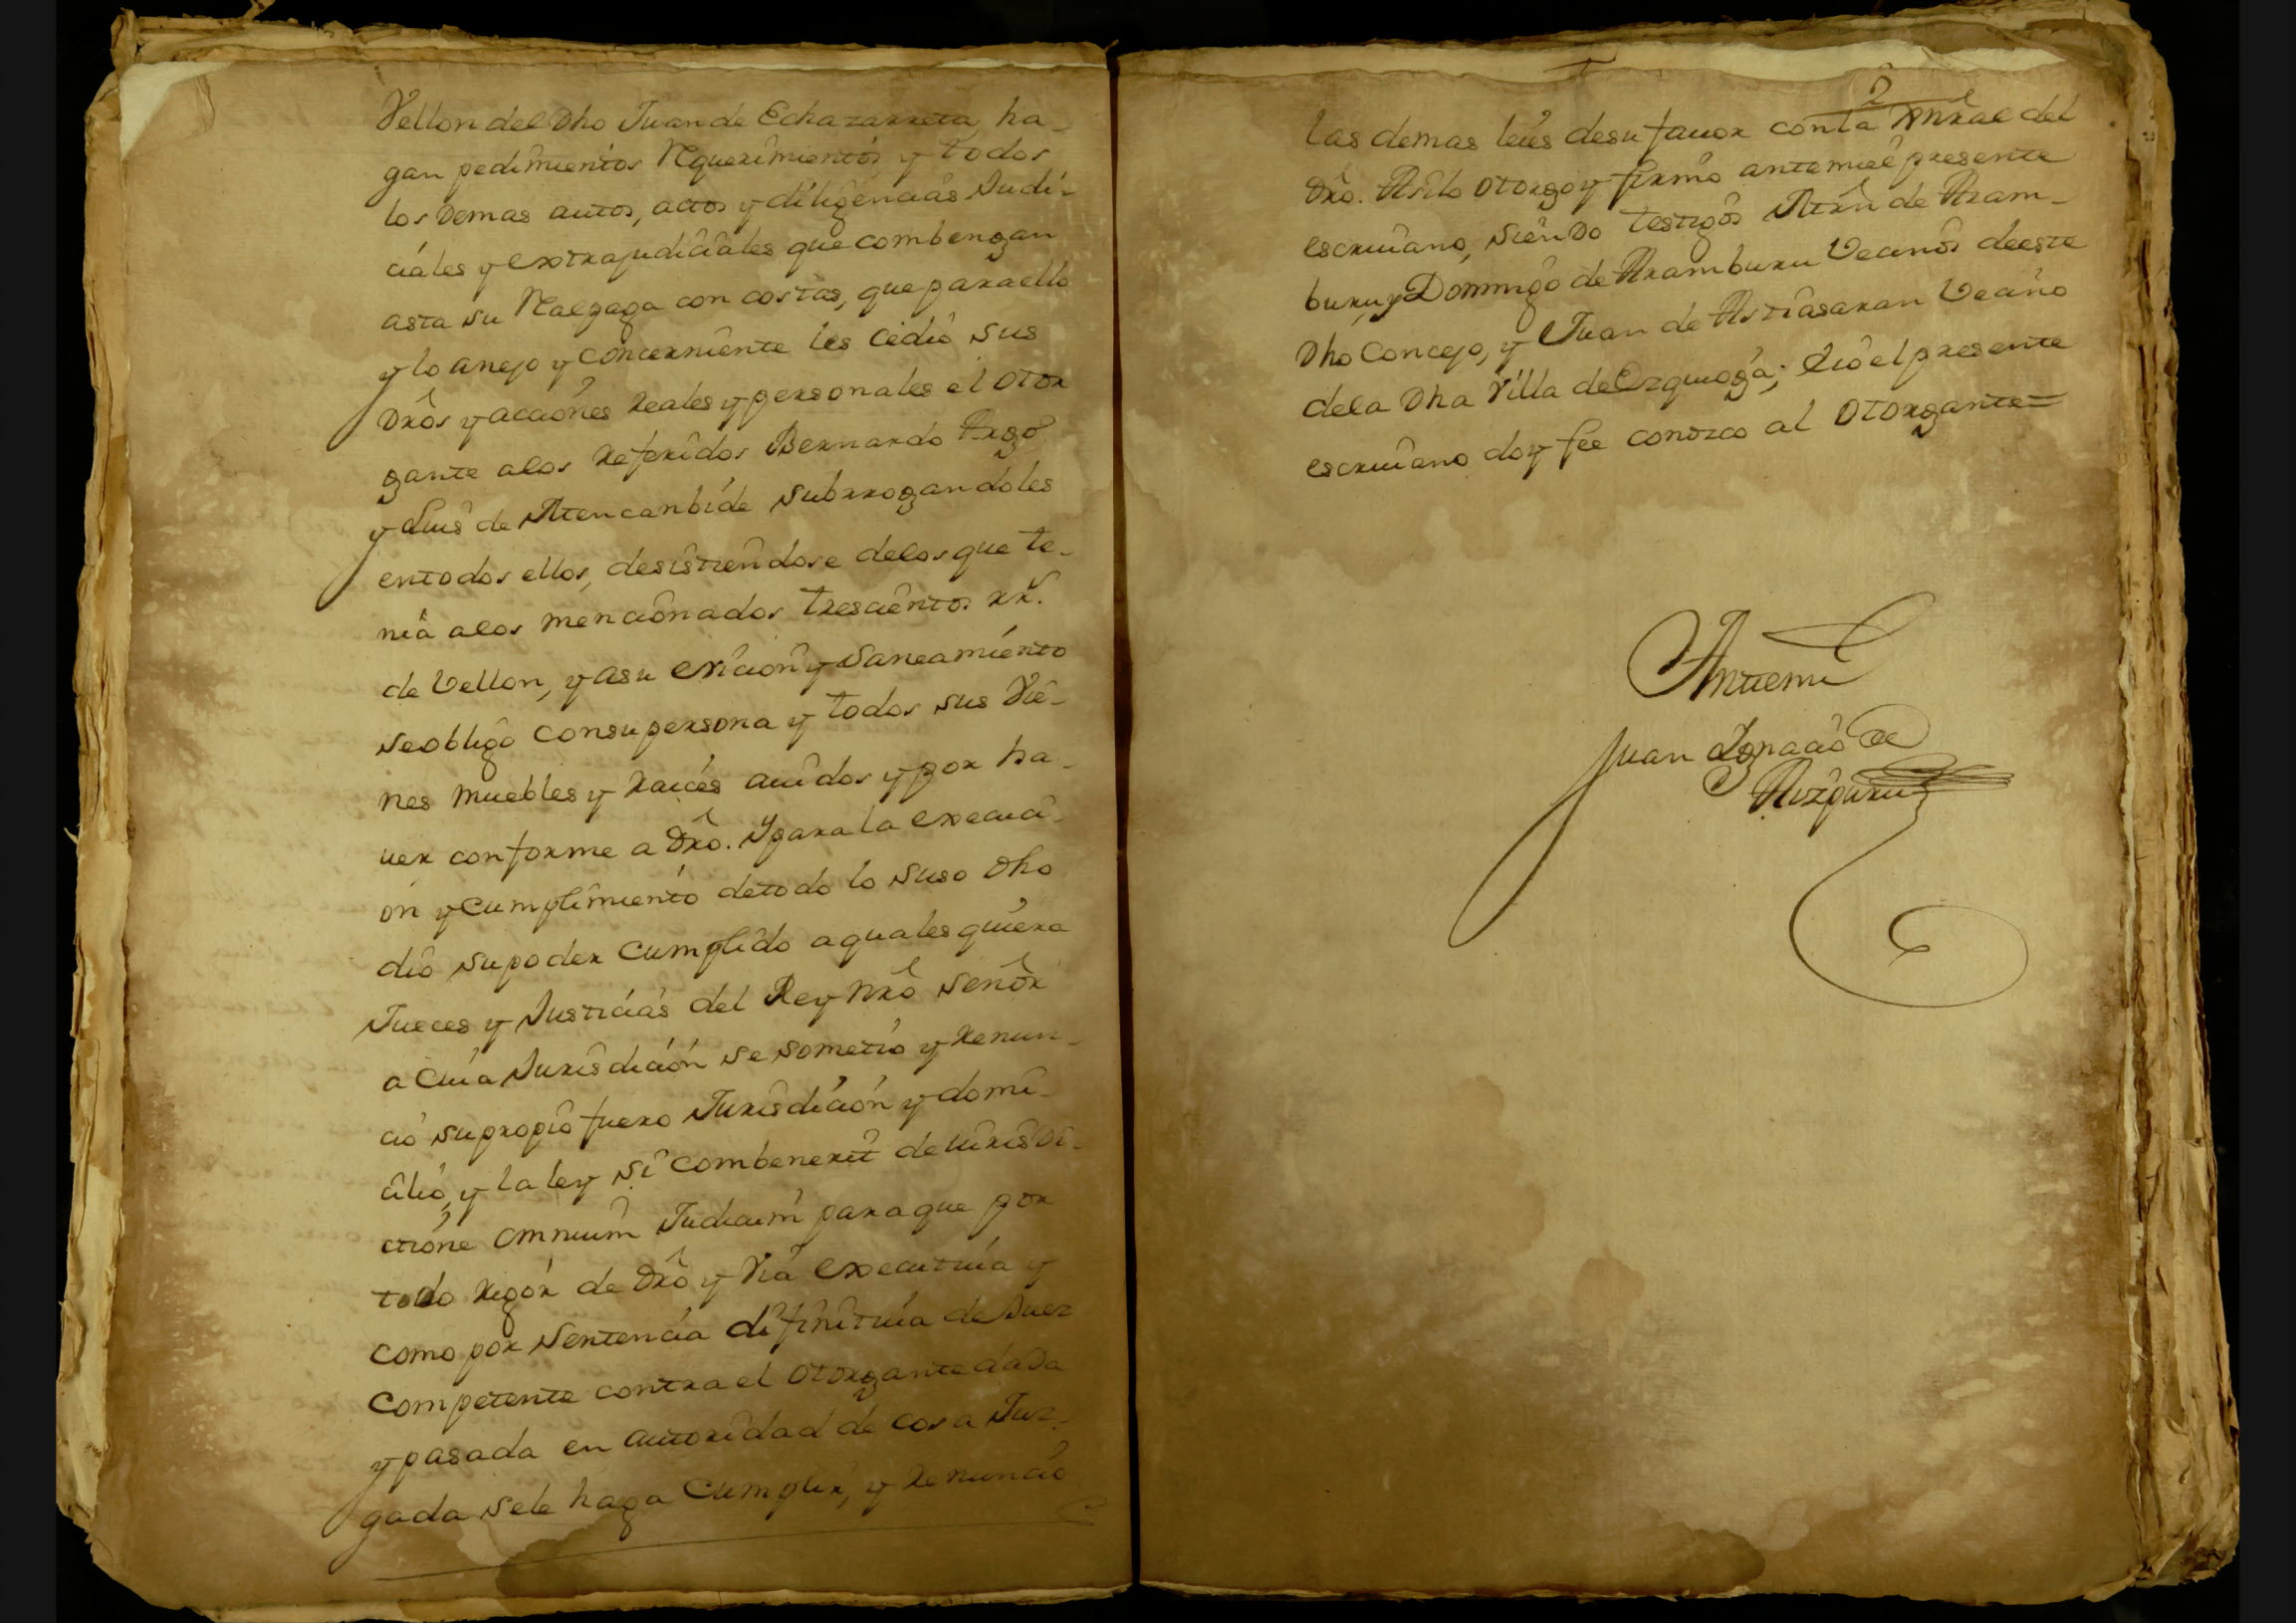 Vellon del Dho Juan de Echazarreta, ha-
gan pedimientos Requerimientos, y todos
los demas autos, actos y diligencias Judi-
ciales y extrajudiciales que combengan
asta su Real paga con costas, que para ello
y lo anejo y concerniente les cedio sus
Drôs y acciones Reales y personales el otor
gante a los referidos Bernardo
y Luis de Atencanbide subrrogandoles
en todos ellos, desistiendose de los que te-
nia a los mencionados trescientos rr̃.
de Vellon, y a su evicion y Saneamiento
se obligo con su persona y todos sus Vie-
nes muebles y raices auidos y por ha-
uer conforme a Drô. Y para la execuci-
on y cumplimiento de todo lo suso dho
dio su poder cumplido a qualesquiera
Jueces y Justicias del Rey Nrô Señor
a cuia Jurisdicion se sometio y renun-
cio su propio fuero Jurisdicion y domi-
cilio, y la ley si combenerit de Iurisdi-
ctione omnium Judicum para que por
todo rigor de Drô y Via executiuia y
como por sentencia difinitiuia de Juez
competente contra el otorgante dada
y pasada en autoridad de cosa Juz-
gada se le haga cumplir, y renuncio
2
las demas leies de su fauor con la Gñrâl del
Drô. Asilo otorgo y firmo ante mi el presente
escriuano, siendo testigos de Aram-
buru, y Domingo de Aramburu Vecinos de este
Dho Concejo, y Juan de Astiasaran Vecino
de la Dha Villa de Ezquioga; e io el presente
escriuano doy fee conozco al otorgante=
Antemi
Juan Ignacio de
Aizpuru